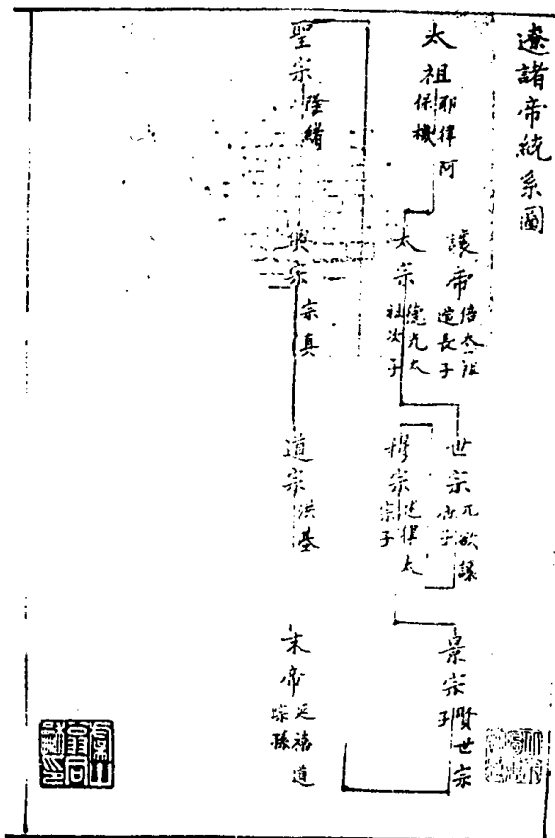 遼諸帝統系圖
太祖耶律阿保機
讓帝倍太祖遥長子
太宗德光太祖次子
世宗兀欲讓帝子
穆宗述律太宗子
景宗賢世宗子
聖宗隆緒
興宗宗真
道宗洪基
末帝延禧道宗孫